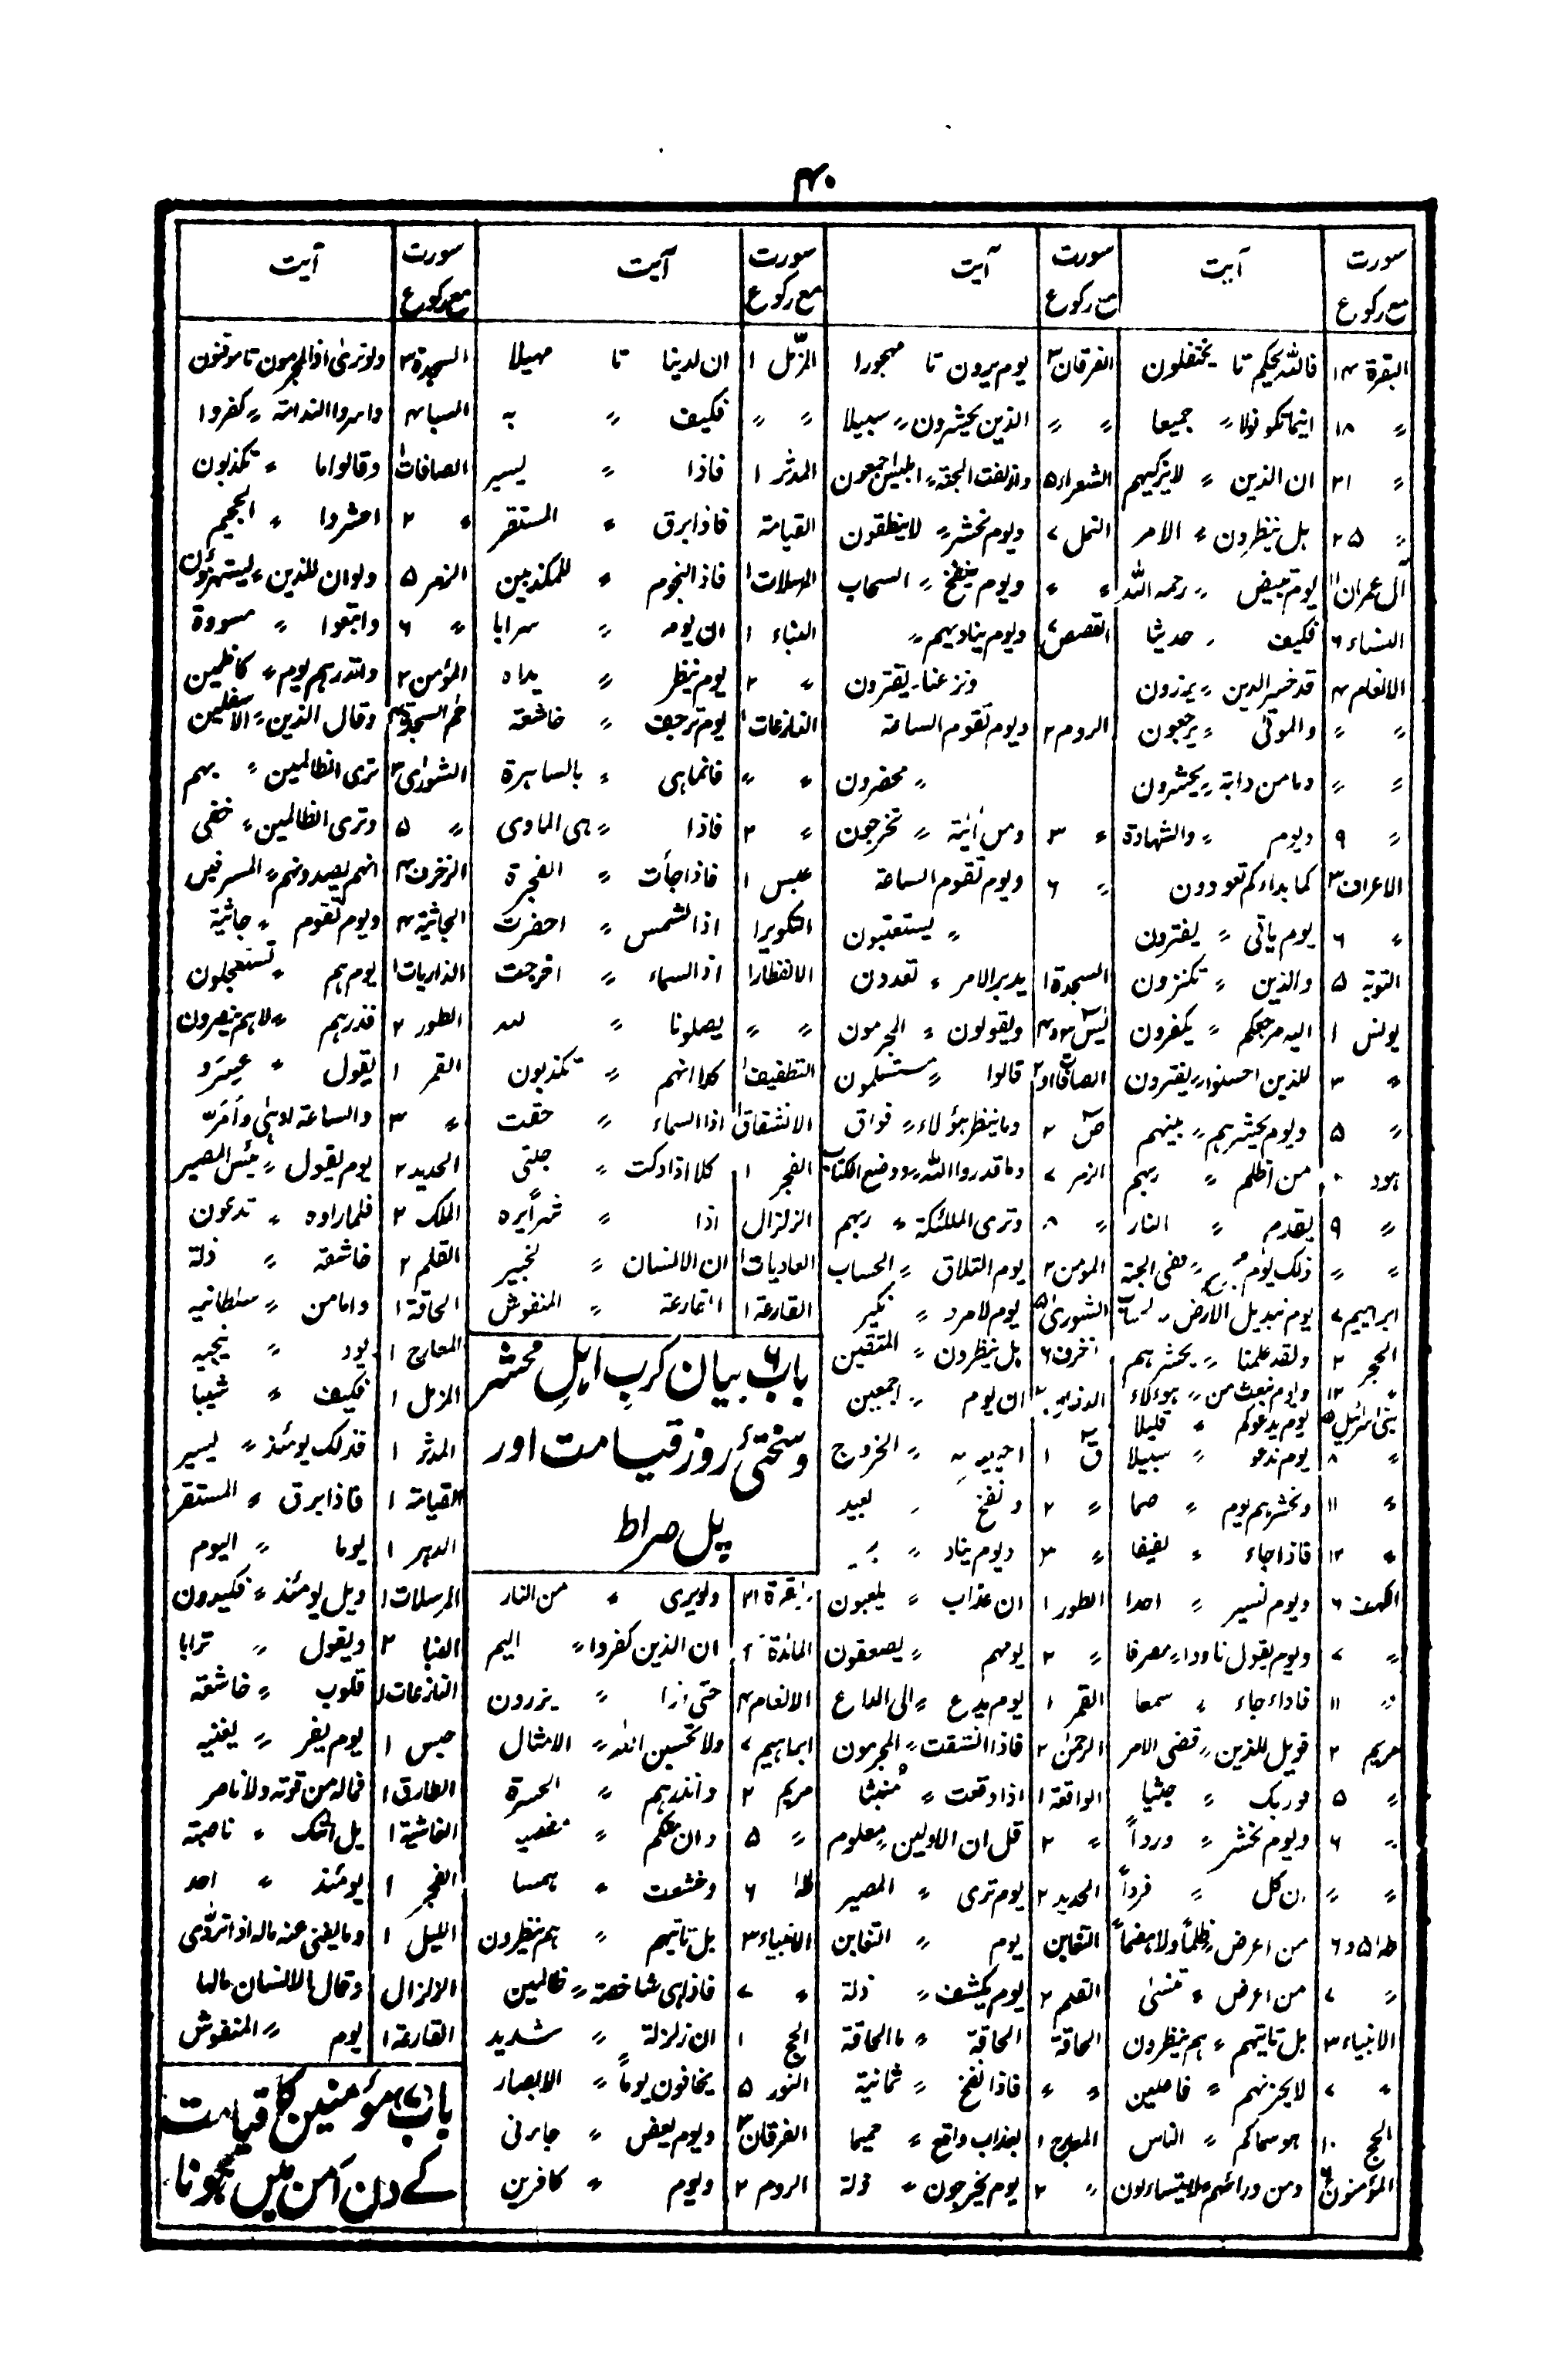 ۴۰
سورت مع رکوع آیت
البقرة ۱۴ فاللہ یحکم تا یختلفون
〃 ۱۸ اینما تکونوا 〃 جمیعا
〃 ۲۱ ان الذین 〃 لا یزکیهم
〃 ۲۵ بل ینظرون 〃 الامر
آل عمران ۱۱ یوم تبیض 〃 رحمة اللہ
النساء ۶ فکیف 〃 حدیثا
الانعام ۴ قد خسر الذین 〃 یزرون
〃 〃 والموتی 〃 یرجعون
〃 〃 وما من دابة 〃 یحشرون
〃 ۹ ویوم 〃 والشهادة
الاعراف ۳ کما بداءکم تعودون
〃 ۶ یوم یاتی 〃 یفترون
التوبة ۵ والذین 〃 تکنزون
یونس ۱ الیه مرجعکم 〃 یکفرون
〃 ۳ للذین احسنوا 〃 یفترون
〃 ۵ ویوم یحشرهم 〃 بینهم
هود من اظلم 〃 ربهم
〃 ۹ یقدم 〃 النار
〃 〃 ذلک یوم 〃 ففی الجنة
ابراهیم ۷ یوم تبدیل الارض 〃
الحجر ۲ ولقد علمنا 〃 یحشرهم
〃 ۱۲ ویوم نبعث من 〃 هؤلاء
بنی اسرائیل ۵ یوم یدعوکم 〃 قلیلا
〃 ۸ یوم ندعو 〃 سبیلا
〃 ۱۱ ونحشرهم یوم 〃 صما
〃 ۱۲ فاذا جاء 〃 لفیفا
الکهف ۶ ویوم نسیر 〃 احدا
〃 ۷ ویوم یقول نادوا 〃 مصرفا
〃 ۱۱ فاذا جاء 〃 سمعا
مریم ۲ فویل للذین 〃 قضی الامر
〃 ۵ فوربک 〃 جثیا
〃 ۶ ویوم نحشر 〃 ورداً
〃 〃 ان کل 〃 فرداً
طه ۵ و ۶ من اعرض 〃 ظلماً ولا هضماً
〃 ۷ من اعرض 〃 تنسیٰ
الانبیاء ۳ بل تاتیهم 〃 هم ینظرون
〃 ۷ لا یحزنهم 〃 فاعلین
الحج ۱۰ هو سماکم 〃 الناس
المؤمنون ۶ ومن ورائهم 〃 لا یتساءلون
سورت مع رکوع آیت
الفرقان ۳ یوم یرون تا مهجورا
〃 〃 الذین یحشرون 〃 سبیلا
الشعراء ۵ وازلفت الجنة 〃 ابلیس اجمعون
النمل ۷ ویوم نحشر 〃 لا ینطقون
〃 〃 ویوم ینفخ 〃 السحاب
القصص ۷ ویوم ینادیهم 〃
ونزعنا 〃 یفترون
الروم ۲ ویوم تقوم الساعة
〃 محضرون
〃 ۳ ومن اٰیٰته 〃 تخرجون
〃 ۶ ویوم تقوم الساعة
〃 یستعتبون
السجدة ۱ یدبر الامر 〃 تعدون
یٰس ۳ و ۴ ویقولون 〃 المجرمون
الصافات ۱ و ۲ قالوا 〃 مستسلمون
ص ۲ وما ینظر هؤلاء 〃 فواق
الزمر ۷ وما قدروا اللہ 〃 ووضع الکتاب
〃 ۸ وتری الملئکة 〃 ربهم
المومن ۲ یوم التلاق 〃 الحساب
الشوریٰ ۵ یوم لا مرد 〃 نکیر
الزخرف ۶ بل ینظرون 〃 المتقین
ان یوم 〃 اجمعین
ق ۱ 〃 الخروج
〃 ۲ ونفخ 〃 بعید
〃 ۳ ویوم یناد 〃
الطور ۱ ان عذاب 〃 یلعبون
〃 ۲ یومهم 〃 یصعقون
القمر ۱ یوم یدع 〃 الی الداع
الرحمن ۲ فاذا انشقت 〃 المجرمون
الواقعة ۱ اذا وقعت 〃 منبثا
〃 ۲ قل ان الاولین 〃 معلوم
الحدید ۲ یوم تری 〃 المصیر
التغابن یوم 〃 التغابن
القلم ۲ یوم یکشف 〃 ذلة
الحاقة الحاقة 〃 ما الحاقة
〃 〃 فاذا نفخ 〃 ثمانیة
المعارج ۱ بعذاب واقع 〃 حمیما
〃 ۲ یوم یخرجون 〃 ذلة
سورت مع رکوع آیت
المزّمل ۱ ان لدینا تا مهیلا
〃 〃 فکیف 〃 به
المدثر ۱ فاذا 〃 یسیر
القیامة فاذا برق 〃 المستقر
المرسلات ۱ فاذا النجوم 〃 للمکذبین
النباء ۱ ان یوم 〃 سرابا
〃 ۲ یوم ینظر 〃 یداه
النازعات ۱ یوم ترجف 〃 خاشعة
〃 〃 فانما هی 〃 بالساهرة
〃 ۲ فاذا 〃 هی الماوی
عبس ۱ فاذا جاءت 〃 الفجرة
التکویر ۱ اذا الشمس 〃 احضرت
الانفطار ۱ اذا السماء 〃 اخرجت
〃 〃 یصلونها 〃 للہ
التطفیف ۱ کلا انهم 〃 تکذبون
الانشقاق ۱ اذا السماء 〃 حقت
الفجر ۱ کلا اذا دکت 〃 جنتی
الزلزال اذا 〃 شراً یره
العادیات ۱ ان الانسان 〃 لخبیر
القارعة ۱ القارعة 〃 المنفوش
باب ۶ بیان کرب اہلِ محشر
وسختیٔ روز قیامت اور
پل صراط
البقرة ۲۱ ولو یری 〃 من النار
المائدة ان الذین کفروا 〃 الیم
الانعام ۴ حتی اذا 〃 یزرون
ابراهیم ۷ ولا تحسبن اللہ 〃 الامثال
مریم ۲ وانذرهم 〃 الحسرة
〃 ۵ وان منکم 〃
طه ۶ وخشعت 〃 همسا
الانبیاء ۳ بل تاتیهم 〃 هم ینظرون
〃 ۷ فاذا هی شاخصة 〃 ظالمین
الحج ۱ ان زلزلة 〃 شدید
النور ۵ یخافون یوماً 〃 الابصار
الفرقان ۳ ویوم یعض 〃 جاءنی
الروم ۲ ویوم 〃 کافرین
سورت مع رکوع آیت
السجدة ۲ ولو تریٰ اذ المجرمون تا موقنون
السبا ۴ واسروا الندامة 〃 کفروا
الصافات ۱ وقالوا ما 〃 تکذبون
〃 ۲ احشروا 〃 الجحیم
الزمر ۵ ولو ان للذین 〃 یستهزؤن
〃 ۶ واتبعوا 〃 مسودة
المؤمن ۲ وانذرهم یوم 〃 کاظمین
حٰم السجدة ۴ وقال الذین 〃 الاسفلین
الشوریٰ ۳ تری الظالمین 〃 بهم
〃 ۵ وتری الظالمین 〃 خفی
الزخرف ۴ انهم یصدونهم 〃 المسرفین
الجاثیة ۴ ویوم تقوم 〃 جاثیة
الذاریات ۱ یوم هم 〃 تستعجلون
الطور ۲ فذرهم 〃 لا هم ینصرون
القمر ۱ یقول 〃 عسر و
〃 ۳ والساعة ادهیٰ وامَرّ
الحدید ۲ یوم یقول 〃 بئس المصیر
الملک ۲ فلما راوه 〃 تدعون
القلم ۲ خاشعة 〃 ذلة
الحاقة ۱ واما من 〃 سلطانیه
المعارج ۱ یود 〃 ینجیه
المزمل ۱ فکیف 〃 شیبا
المدثر ۱ فذلک یومئذ 〃 یسیر
القیامة ۱ فاذا برق 〃 المستقر
الدهر ۱ یوما 〃 الیوم
المرسلات ۱ ویل یومئذ 〃 فکیدون
النبا ۲ ویقول 〃 ترابا
النازعات ۱ قلوب 〃 خاشعة
عبس ۱ یوم یفر 〃 یغنیه
الطارق ۱ فماله من قوته ولا ناصر
الغاشیة ۱ هل اتک 〃 ناصبة
الفجر ۱ یومئذ 〃 احد
اللیل ۱ وما یغنی عنه ماله اذا تردّٰی
الزلزال وقال الانسان مالها
القارعة ۱ یوم 〃 المنفوش
باب (۷) مؤمنین کا قیامت
کے دن امن میں ہونا